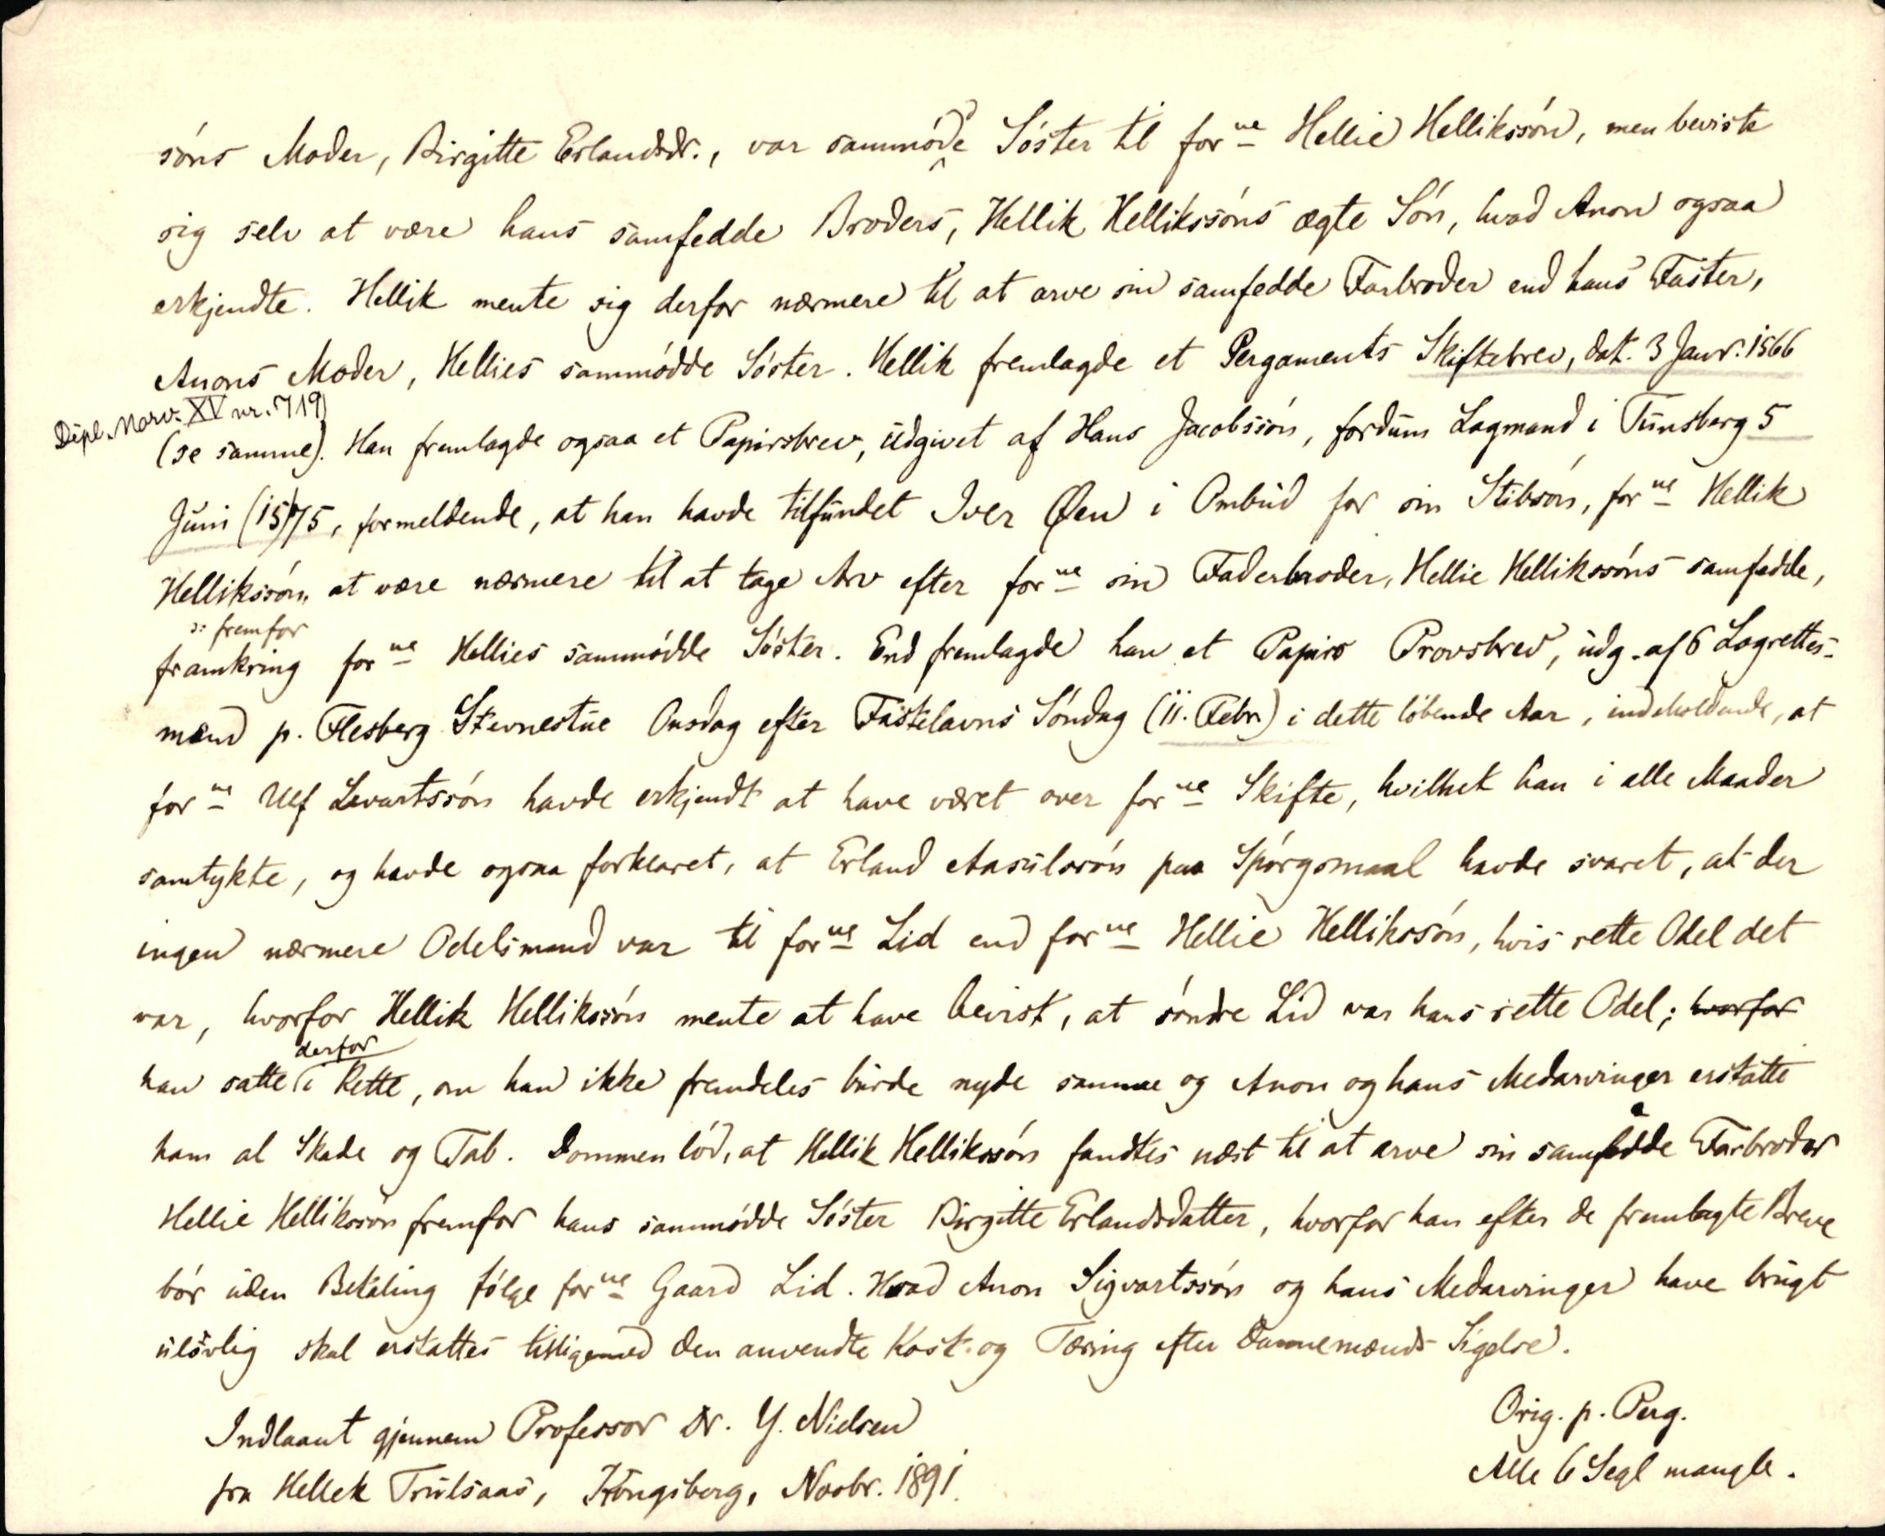 söns Moder, Birgitte Erlandsdr., var sammödde Söster til forne Hellie Hellikssön, men beviste
sig selv at være hans samfedde Broders, Hellik Hellikssöns ægte Sön, hvad Anon ogsaa
erkjendte. Hellik mente sig derfor nærmere til at arve sin samfedde Farbroder end hans Faster,
Anons Moder, Hellies sammödde Söster. Hellik fremlagde et Pergaments Skiftebrev, dat. 3 Janr. 1566
Dipl. Norv. XV nr. 719)
(se samme). Han fremlagde ogsaa et Papirsbrev, udgivet af Hans Jacobssön, fordum Lagmand i Tunsberg 5
Juni (15)75, formeldende, at han havde tilfundet Iver Øen i Ombud for sin Stibsön, forne Hellik
Hellikssön, at være nærmere til at tage Arv efter forne sin Faderbroder, Hellie Hellikssöns samfedde,
ɔ: fremfor
framkring forne Hellies sammödde Söster. End fremlagde han et Papirs Provsbrev, udg. af 6 Lagrettes-
mænd p. Flesberg Stevnestue Onsdag efter Fastelavns Söndag (11. Febr.) i dette löbende Aar, indeholdende, at
forne Ulf Levartssön havde erkjendt at have været over forne Skifte, hvilket han i alle Maader
samtykte, og havde ogsaa forklaret, at Erland Aasulssön paa Spörgsmaal havde svaret, at der
ingen nærmere Odelsmand var til forne Lid end forne Hellie Hellikssön, hvis rette Odel det
var, hvorfor Hellik Hellikssön mente at have bevist, at söndre Lid var hans rette Odel; hvorfor
derfor
han satte i Rette, om han ikke fremdeles burde nyde samme og Anon og hans Medarvinger erstatte
ham al Skade og Tab. Dommen löd, at Hellik Hellikssön fandtes næst til at arve sin samfedde Farbroder
Hellie Hellikssön fremfor hans sammödde Söster Birgitte Erlandsdatter, hvorfor han efter de fremlagte Breve
bör uden Betaling fölge forne Gaard Lid. Hvad Anon Sigvartssön og hans Medarvinger have brugt
ulovlig skal erstattes tilligemed den anvendte Kost og Tæring efter Dannemænds Sigelse.
Indlaant gjennem Professor Dr. Y. Nielsen
fra Hellek Trulsaas, Kongsberg, Novbr. 1891.
Orig. p. Perg.
Alle 6 Segl mangle.